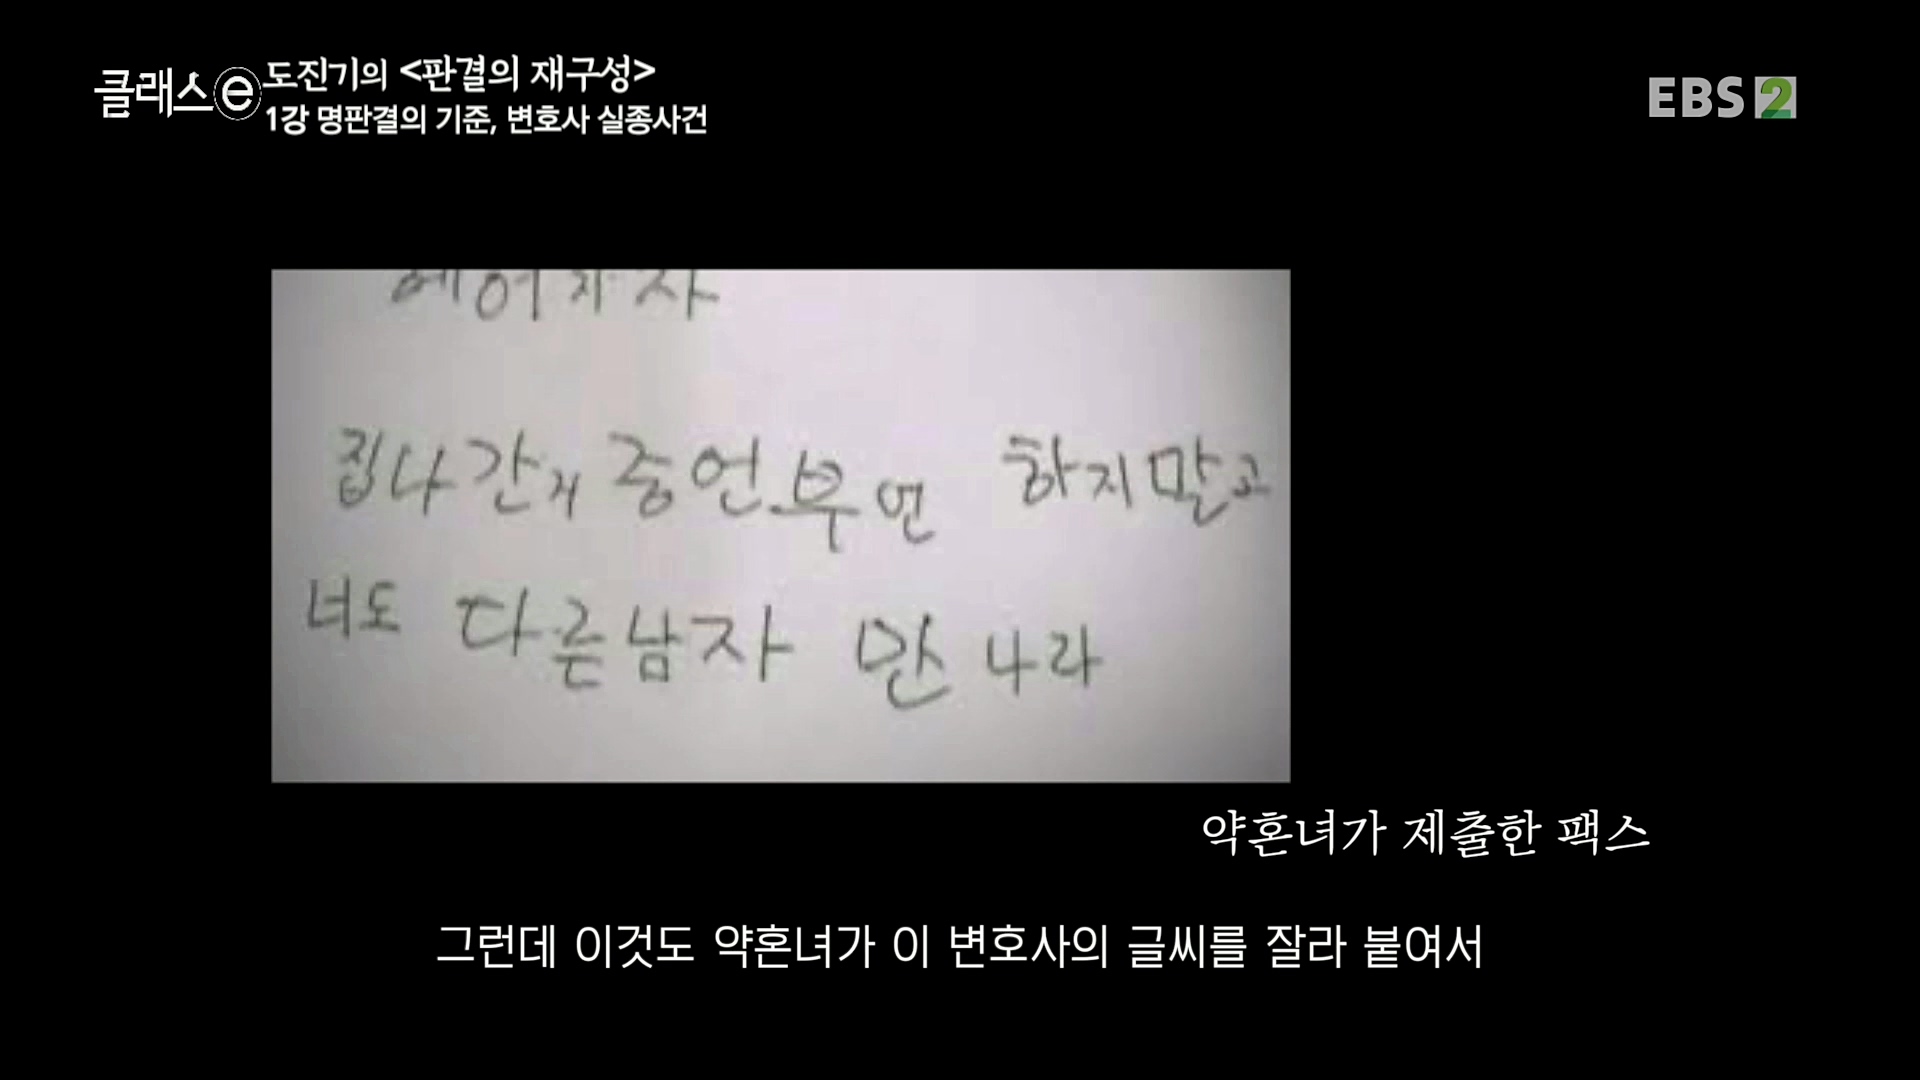 클래스e
도진기의 <판결의 재구성>
1강 명판결의 기준, 변호사 실종사건
EBS 2
헤어지자
집나간거 중언부언 하지말고
너도 다른남자 만나라
약혼녀가 제출한 팩스
그런데 이것도 약혼녀가 이 변호사의 글씨를 잘라 붙여서